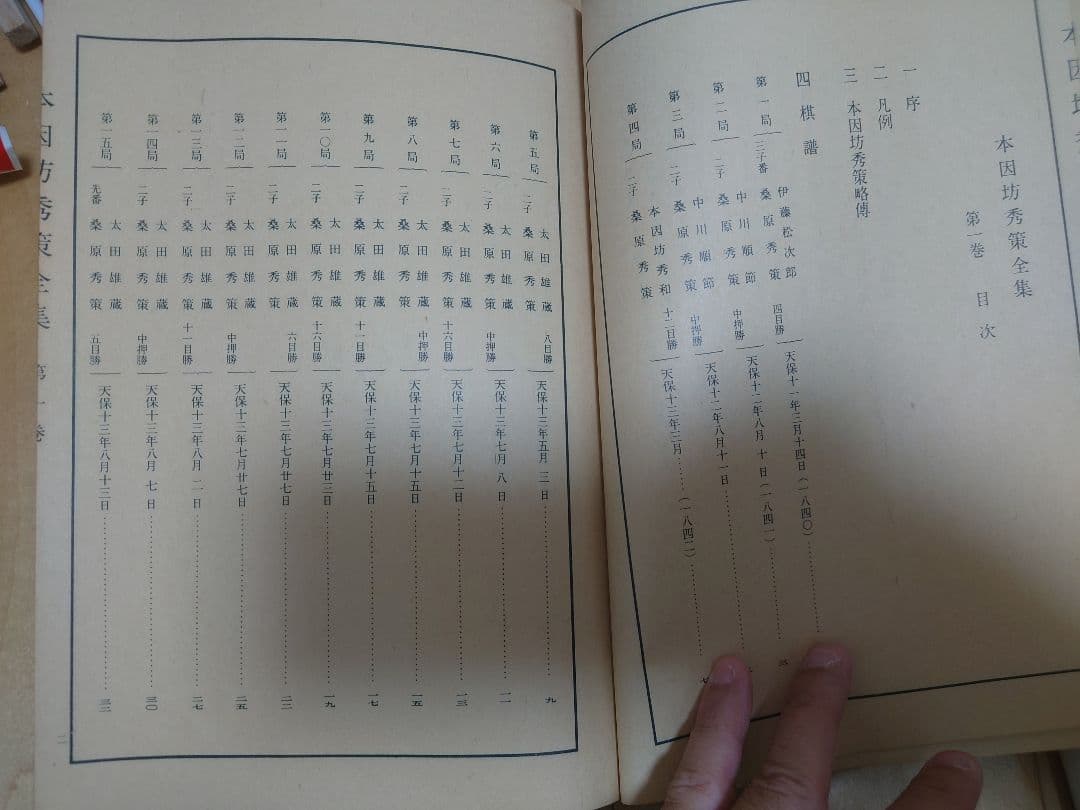 本因坊秀策全集
第一巻 目次
一 序
二 凡例
三 本因坊秀策略傳
四 棋譜
第一局 三子番 伊藤松次郎
桑原秀策 四目勝 天保十一年三月十四日(一八四〇)
第二局 二子 中川順節
桑原秀策 中押勝 天保十二年八月十日(一八四一) 三
第三局 二子 中川順節
桑原秀策 中押勝 天保十二年八月十一日
第四局 二子 本因坊秀和
桑原秀策 十二目勝 天保十三年二月(一八四二) 七
第五局 二子 太田雄蔵 八目勝
桑原秀策 天保十三年五月三日 九
第六局 二子 太田雄蔵
桑原秀策 中押勝 天保十三年七月八日 一一
第七局 二子 太田雄蔵
桑原秀策 十六目勝 天保十三年七月十二日 一三
第八局 二子 太田雄蔵 中押勝
桑原秀策 天保十三年七月十五日 一五
第九局 二子 太田雄蔵
桑原秀策 十一目勝 天保十三年七月十五日 一七
第一〇局 二子 太田雄蔵
桑原秀策 十六目勝 天保十三年七月廿三日 一九
第一一局 二子 太田雄蔵 六目勝
桑原秀策 天保十三年七月廿七日 二二
第一二局 二子 太田雄蔵
桑原秀策 中押勝 天保十三年七月廿七日 二五
第一三局 二子 太田雄蔵
桑原秀策 十一目勝 天保十三年八月二日 二七
第一四局 二子 太田雄蔵
桑原秀策 中押勝 天保十三年八月七日 三〇
第一五局 先番 太田雄蔵
桑原秀策 五目勝 天保十三年八月十三日 三三
本因坊秀策全集 第一巻
二